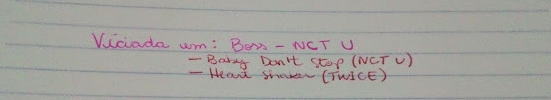 Viciada em: Boss - NCT U
- Baby Don't Stop (NCT U)
- Heart Shaker (TWICE)